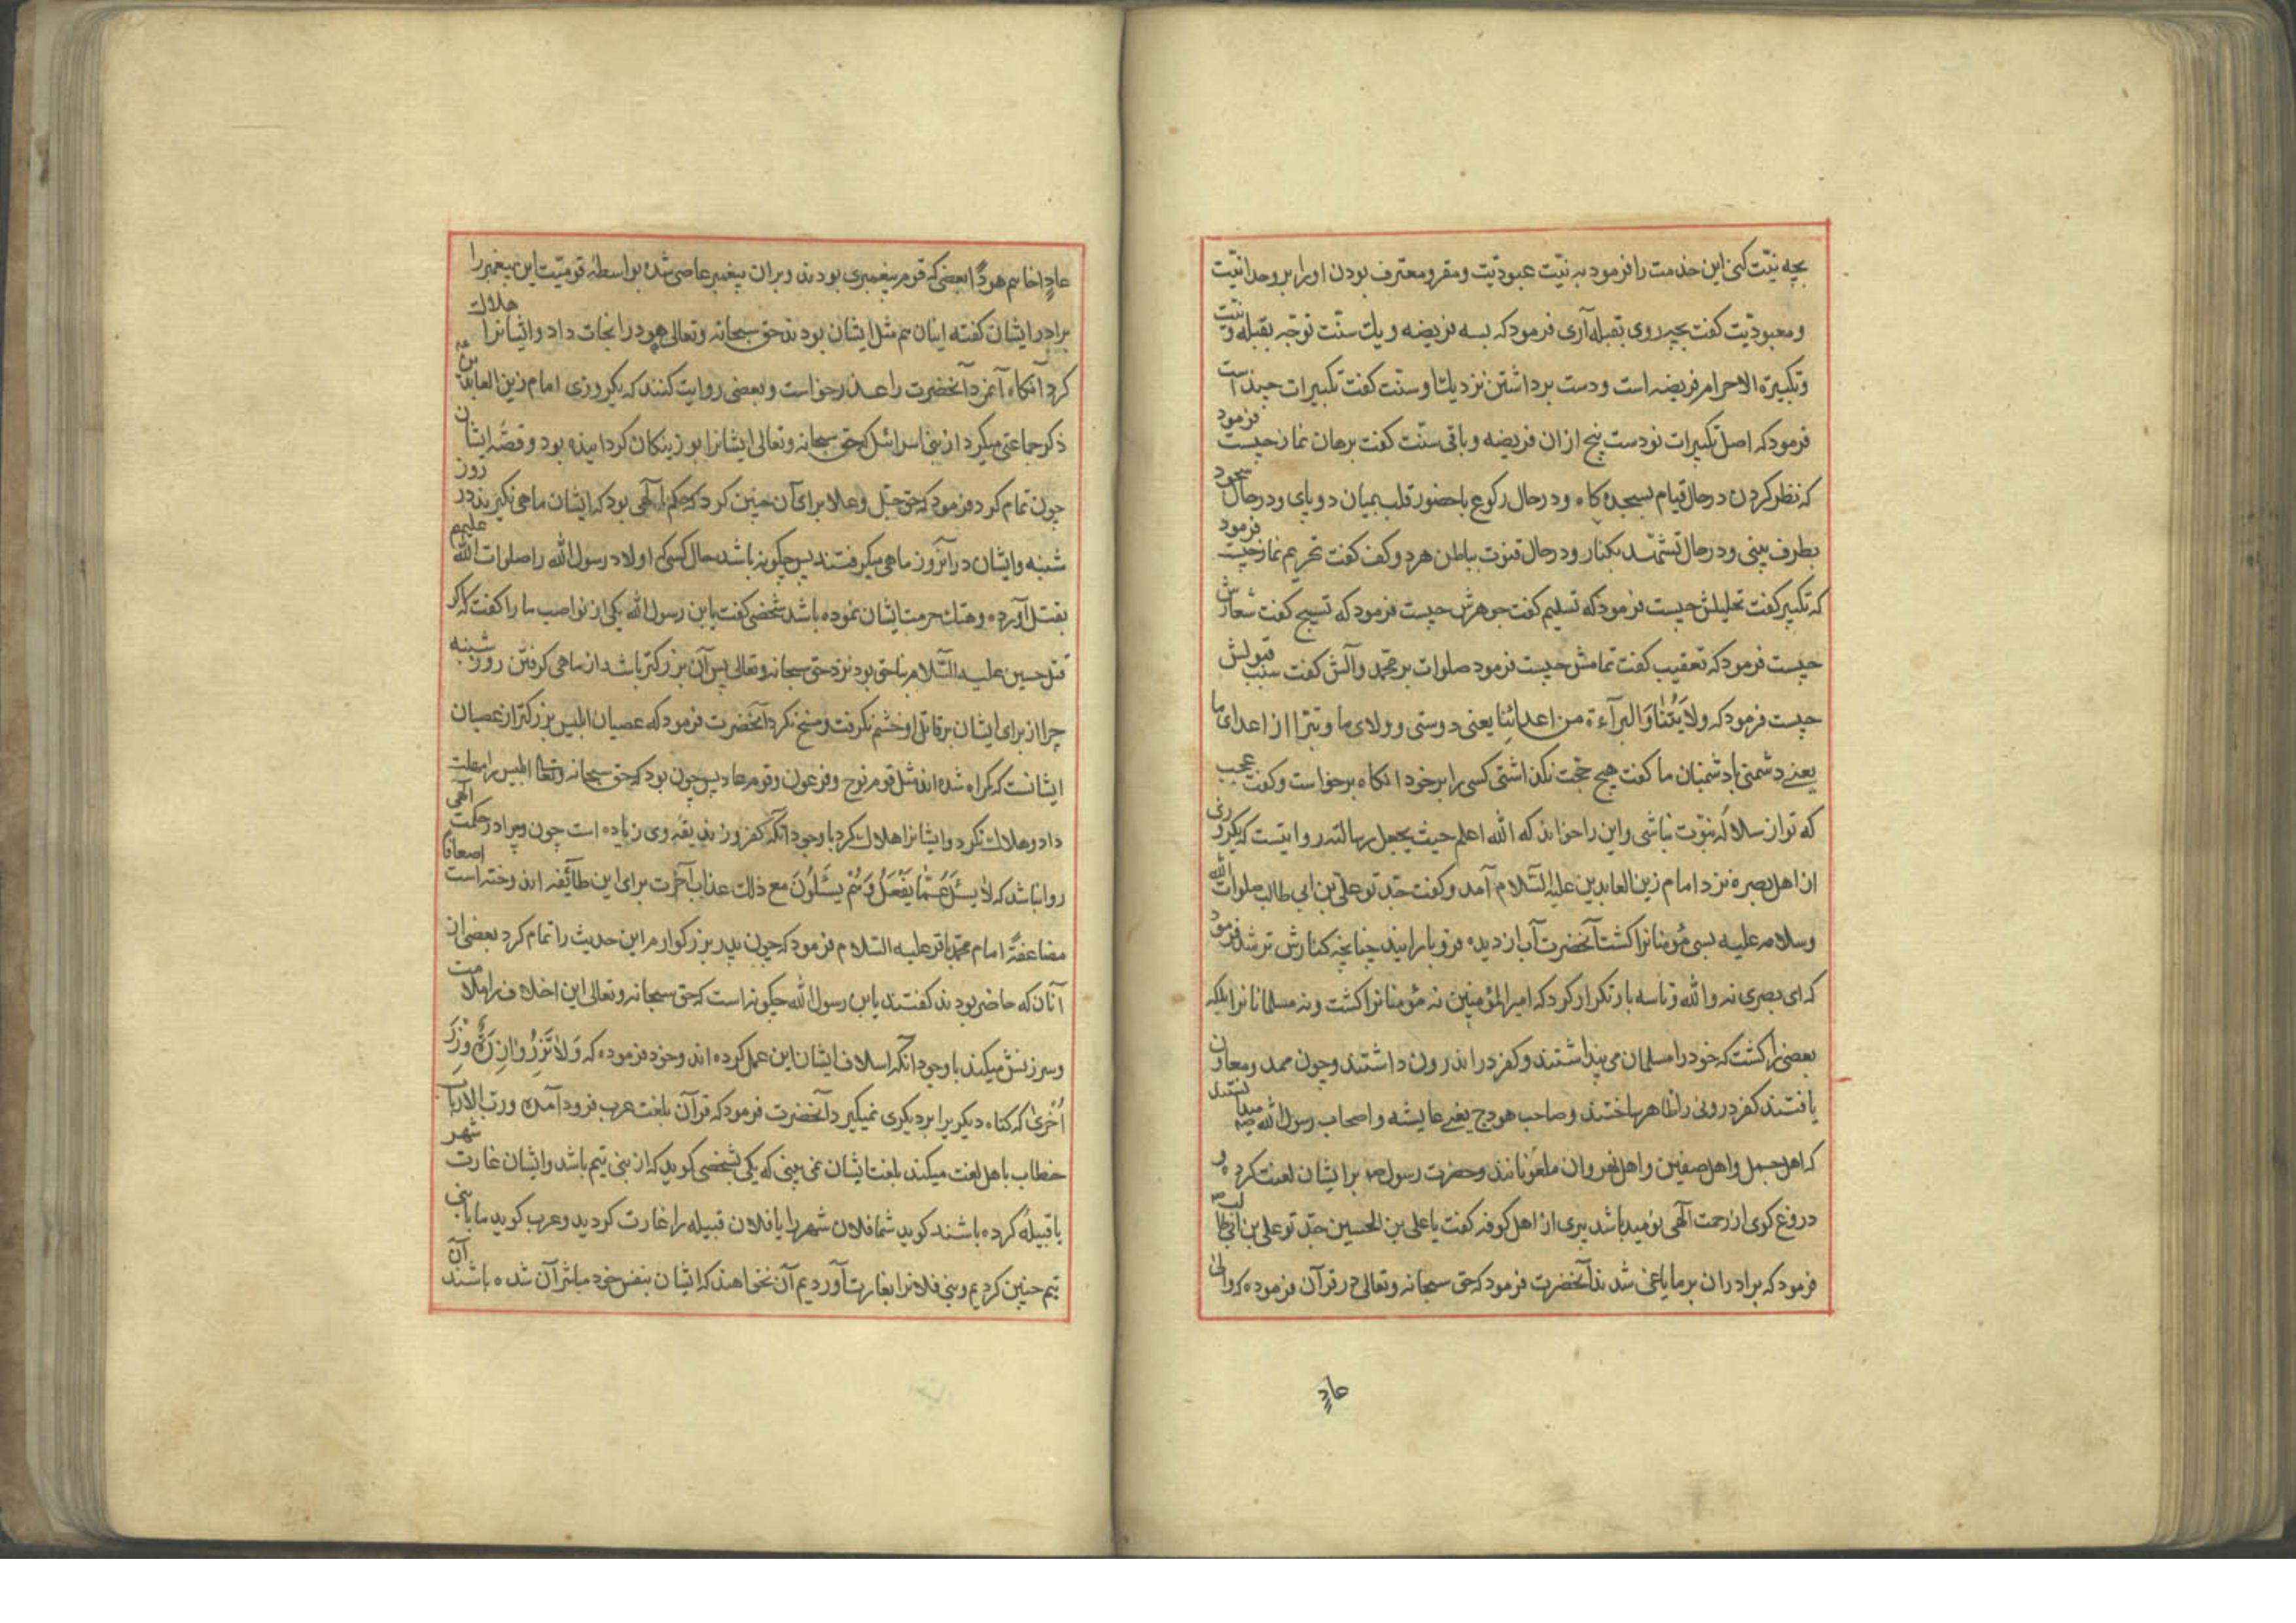 بچه نیّت کنی این خدمت را فرمود به نیّت عبودیّت و مقر و معترف بودن او را بر وحدانیّت
و معبودیّت کفت بچه روی بقبله آری فرمود که بسه فریضه و یک سنّت توجّه بقبله و نیّت
و تکبیرة الاحرام فریضه است و دست برداشتن نزدیک ما و سنّت کفت تکبیرات چند است
فرمود که اصل تکبیرات نودست پنج ازان فریضه و باقی سنّت کفت برهان نماز چیست فرمود
که نظر کردن در حال قیام بسجده کاه و در حال رکوع با حضور قلب بمیان دو پای و در حال سجود
بطرف بینی و در حال تشهّد بکنار و در حال قنوت بباطن هر دو کف کفت تحریم نماز چیست فرمود
که تکبیر کفت تحلیلش چیست فرمود که تسلیم کفت جوهرش چیست فرمود که تسبیح کفت شعارش
چیست فرمود که تعقیب کفت تمامش چیست فرمود صلوات بر محمّد و آلش کفت سبب قبولش
چیست فرمود که ولایتنا و البرآءة من اعدائنا یعنی دوستی و ولای ما و تبرّا از اعدای ما
یعنے دشمنی با دشمنان ما کفت هیچ حجّت نکذاشتی کسی را بر خود انکاه برخواست و کفت عجب
که تو از سلاله نبوّت نباشی و این را خواند که الله اعلم حیث یجعل رسالته روایتست که یکروزی
از اهل بصره نزد امام زین العابدین علیه السّلام آمد و کفت جدّ تو علی بن ابی طالب صلوات الله
و سلامه علیه بسی مؤمنانرا کشت آنحضرت آب از دیده فرو بارانید چنانچه کنارش تر شد فرمود
که ای بصری نه والله و تا سه بار تکرار کرد که امیر المؤمنین نه مؤمنانرا کشت و نه مسلمانانرا بلکه
بعضی را کشت که خود را مسلمان می پنداشتند و کفر در اندرون داشتند و چون ممد و معاون
یافتند کفر درونی را ظاهر ساختند و صاحب هودج یعنے عایشه و اصحاب رسول الله ص میدانستند
که اهل جمل و اهل صفین و اهل نهروان ملعونانند و حضرت رسول ص بر ایشان لعنت کرده و
دروغ کوی از رحمت آلهی نومید باشد پیری از اهل کوفه کفت یا علی بن الحسین جدّ تو علی بن ابی طالب
فرمود که برادران بر ما یاغی شدند آنحضرت فرمود که حق سبحانه و تعالی در قرآن فرموده که والی
عادٍ
عادٍ اخاهم هودًا بعضی که قوم پیغمبری بودند و بران پیغمبر عاصی شده بواسطه قومیّت این پیغمبر را
برادر ایشان کفته اینان هم مثل ایشان بودند حق سبحانه و تعالی هود را نجات داد و ایشانرا هلاک
کرد آنکاه آنمرد آنحضرت را عذر خواست و بعضی روایت کنند که یکروزی امام زین العابدین ع
ذکر جماعتی میکرد از بنی اسرائیل که حق سبحانه و تعالی ایشانرا بوزینکان کردانیده بود و قصّه ایشان
چون تمام کرد فرمود که حق جلّ و علا برای آن چنین کرد که حکم آلهی بود که ایشان ماهی نکیرند در روز
شنبه و ایشان در آنروز ماهی میکرفتند پس چکونه باشد حال کسی که اولاد رسول الله را صلوات الله علیهم
بقتل آورده و هتک حرمت ایشان نموده باشد شخصی کفت یا بن رسول الله یکی از نواصب ما را کفت که اکر
قتل حسین علیه السّلام ناحق بود نزد حق سبحانه و تعالی پس آن بزرکتر باشد از ماهی کرفتن روز شنبه
چرا از برای ایشان بر قاتل او خشم نکرفت و مسخ نکرد آنحضرت فرمود که عصیان ابلیس بزرکتر از عصیان
ایشانست که کمراه شده اند مثل قوم نوح و فرعون و قوم عاد پس چون بود که حق سبحانه و تعالی ابلیس را مهلت
داد و هلاک نکرد و ایشانرا هلاک کرد با وجود انکه کفر و زندیقه وی زیاده است چون و چرا در حکمت آلهی
روا نباشد که لا یسئل عمّا یفعل و هم یسئلون مع ذلک عذاب آخرت برای این طائفه اندوخته است اضعافا
مضاعفةً امام محمّد باقر علیه السّلام فرمود که چون پدر بزرکوارم این حدیث را تمام کرد بعضی از
آنان که حاضر بودند کفتند یابن رسول الله چکونه است که حق سبحانه و تعالی این اخلاف را ملامت
و سرزنش میکند با وجود آنکه اسلاف ایشان این عمل کرده اند و خود فرموده که و لا تزر وازرة وزر
اُخری که کناه دیکریرا بر دیکری نمیکیرد آنحضرت فرمود که قرآن بلغت عرب فرود آمده و ربّ الارباب
خطاب با هل لغت میکند بلغت ایشان نمی بینی که یکی بشخصی کوید که از بنی تیم باشد و ایشان غارت شهر
یا قبیله کرده باشند کوید شما فلان شهر را یا فلان قبیله را غارت کردید و عرب کوید ما با بنی
تیم چنین کردیم و بنی فلانرا بغارت آوردیم آن نخواهند که ایشان بنفس خود مباشر آن شده باشند آن